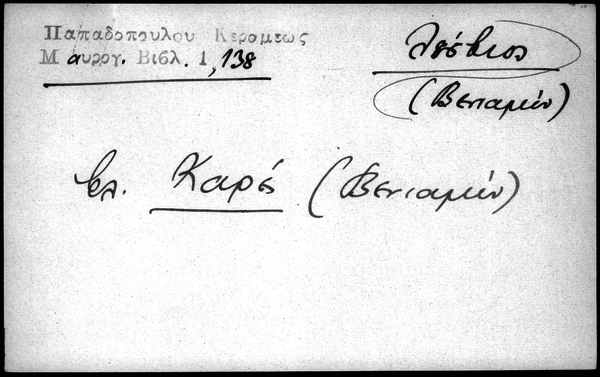 Παπαδοπουλου Κεραμεως
Μαυρογ. Βιβλ. 1, 138
Λέσβιος
(Βενιαμίν)
βλ. Καρέ (Βενιαμίν)